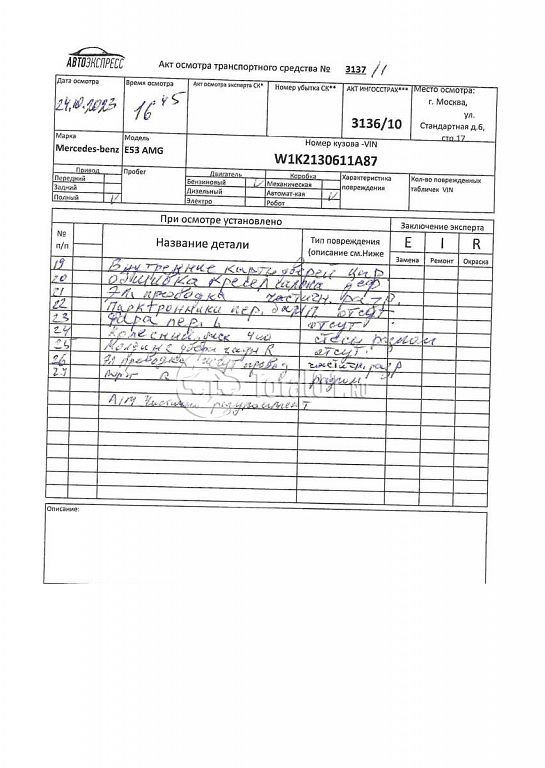 АВТОЭКСПРЕСС
Акт осмотра транспортного средства № 3137/1
Дата осмотра
24.10.2023
Время осмотра
16 45
Акт осмотра эксперта СК*
Номер убытка СК**
АКТ ИНГОССТРАХ***
3136/10
Место осмотра:
г. Москва,
ул.
Стандартная д.6,
стр.17
Марка
Mercedes-benz
Модель
E53 AMG
Номер кузова -VIN
W1K2130611A87
Привод
Передний
Задний
Полный V
Пробег
Двигатель
Бензиновый V
Дизельный
Электро
Коробка
Механическая
Автомат-кая V
Робот
Характеристика
повреждения
Кол-во поврежденных
табличек VIN
При осмотре установлено
Заключение эксперта
№
п/п
Название детали
Тип повреждения
(описание см.Ниже
E I R
Замена Ремонт Окраска
19 Внутренние карты дверей цар
20 Обшивка кресел салона деф
21 Эл проводка частичн. разр.
22 Парктроники пер. бамп. отсут
23 Фара пер. L отсут
24 Колесный диск 4 шт
25 Молдинг R отсут.
26 Эл проводка частичн разр
27 порог R
Л/М частично
Описание: